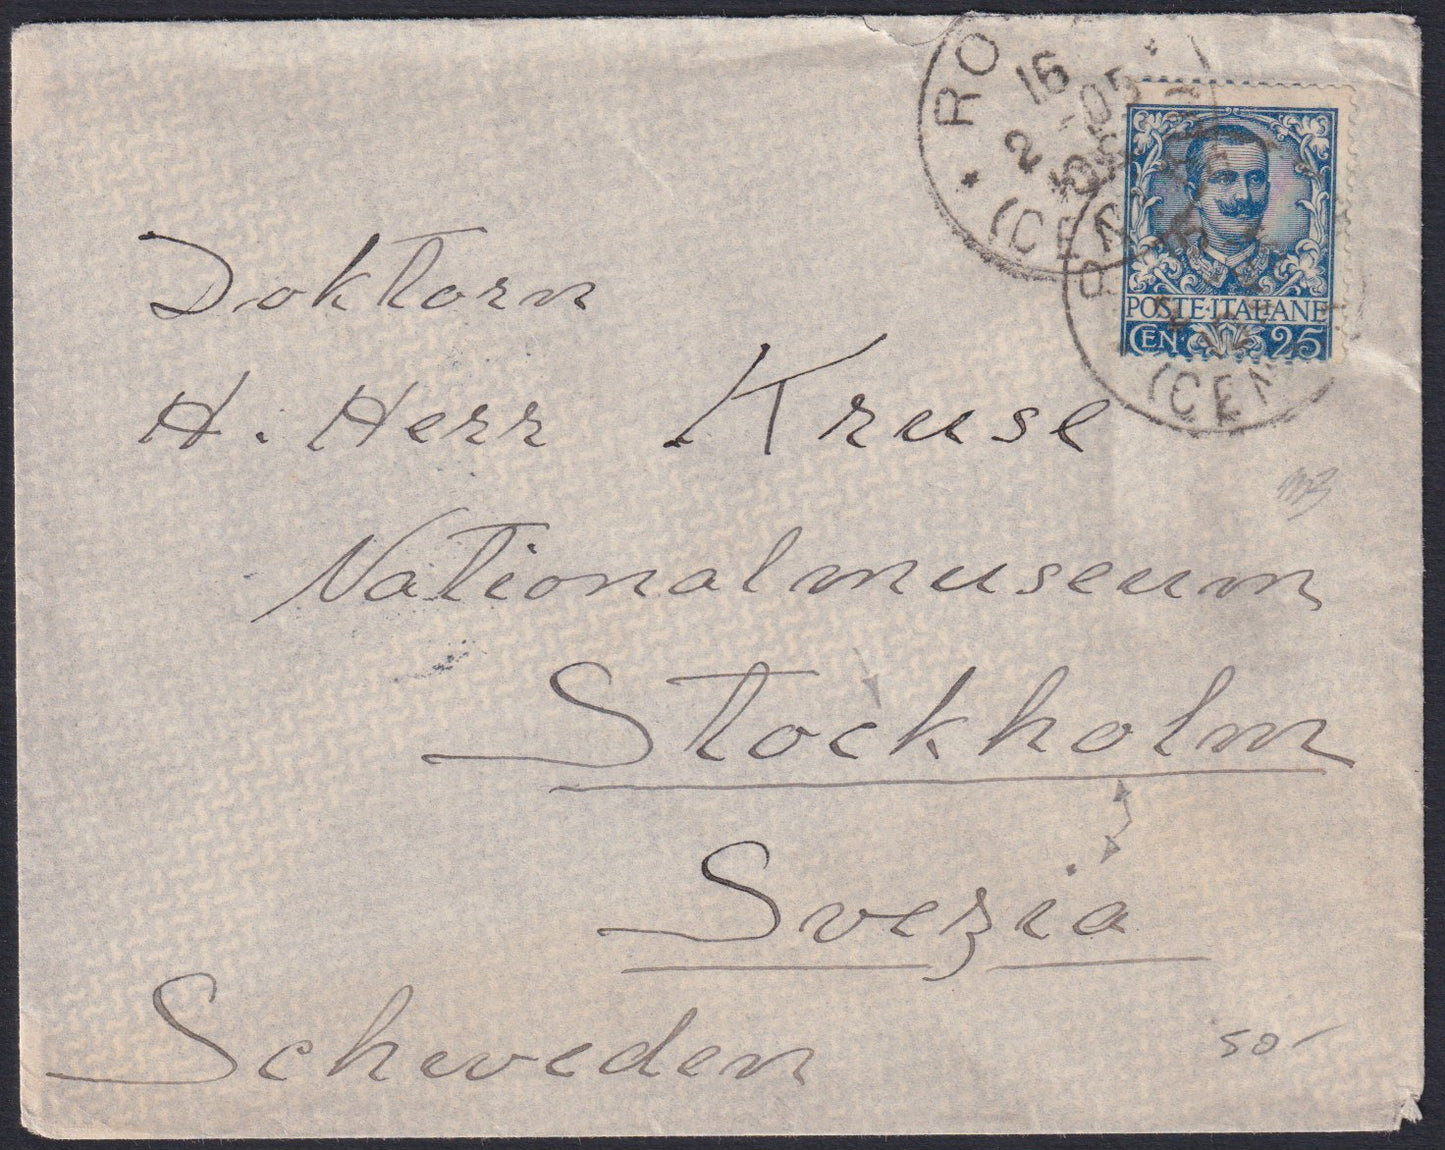 RO
16
2
05
(CEN
POSTE·ITALIANE
CEN 25
(CEN
Doktorn
H. Herr Kruse
Nationalmuseum
Stockholm
Svezia
Schweden
50